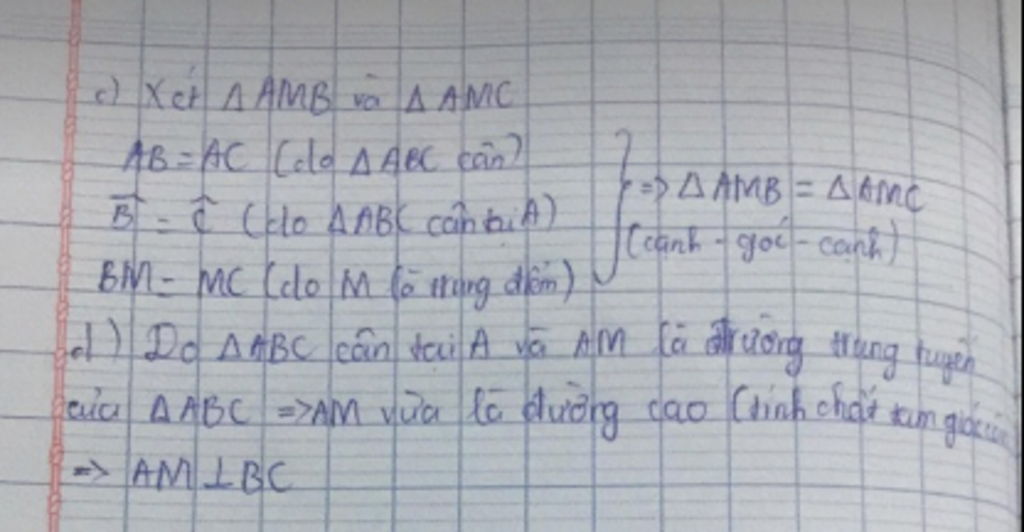 c) Xét Δ AMB và Δ AMC
AB = AC (do Δ ABC cân)
B̂ = Ĉ (do ΔABC cân tại A)
BM = MC (do M là trung điểm)
} => Δ AMB = Δ AMC
(cạnh - góc - cạnh)
d) Do ΔABC cân tại A và AM là đường trung tuyến
của ΔABC => AM vừa là đường cao (tính chất tam giác cân
=> AM ⊥ BC